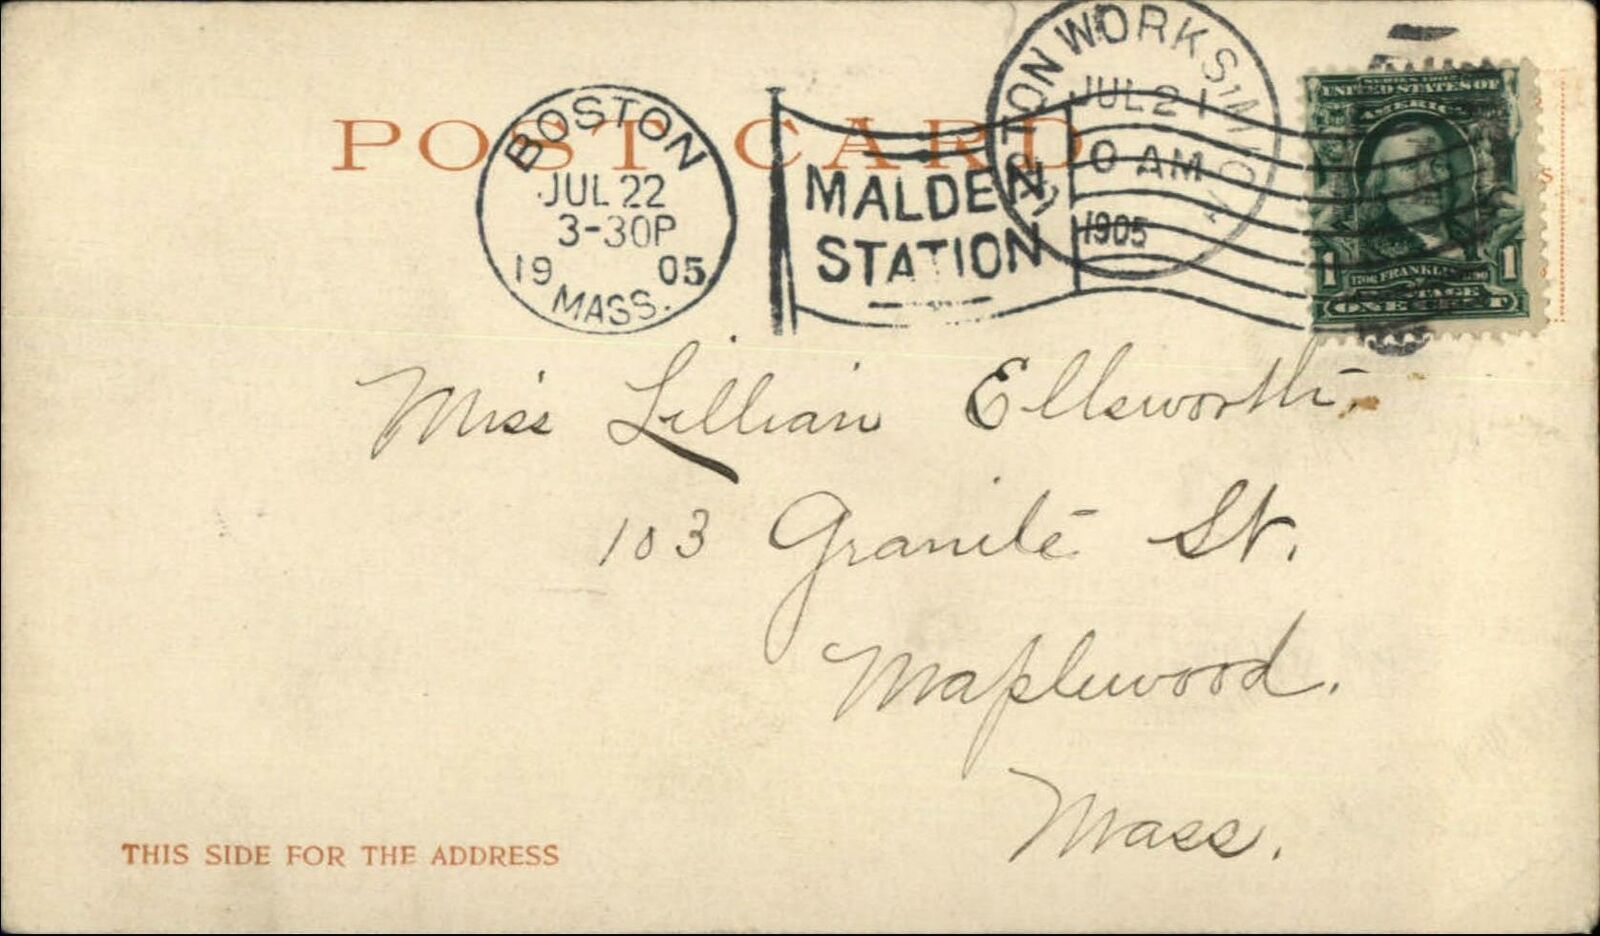 POST CARD
BOSTON
JUL 22
3-30P
19 05
MASS.
MALDEN
STATION
TON WORKS, N.Y.
JUL 21
0 AM
1905
SERIES 1902
UNITED STATES OF
AMERICA
1 1706 FRANKLIN 1790 1
POSTAGE
ONE CENT
Miss Lillian Ellsworth.
103 Granite St.
Maplewood.
Mass.
THIS SIDE FOR THE ADDRESS